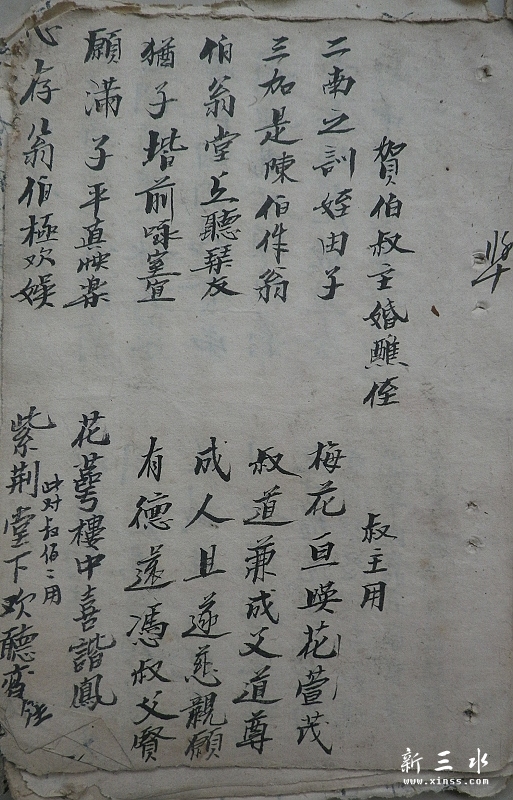 賀伯叔主婚醮侄
二南之訓姪由子
三加是陳伯侏翁
伯翁堂上聽琴友
猶子堦前咏室宜
願滿子平真快楽
心存翁伯極欢娱
叔主用
梅花亘暎花萱茂
叔道兼成父道尊
成人且遂慈親願
有德還憑叔父賢
花萼樓中喜諧鳳
此对叔伯二用
紫荆堂下欢聽
新三水
www.xinss.com